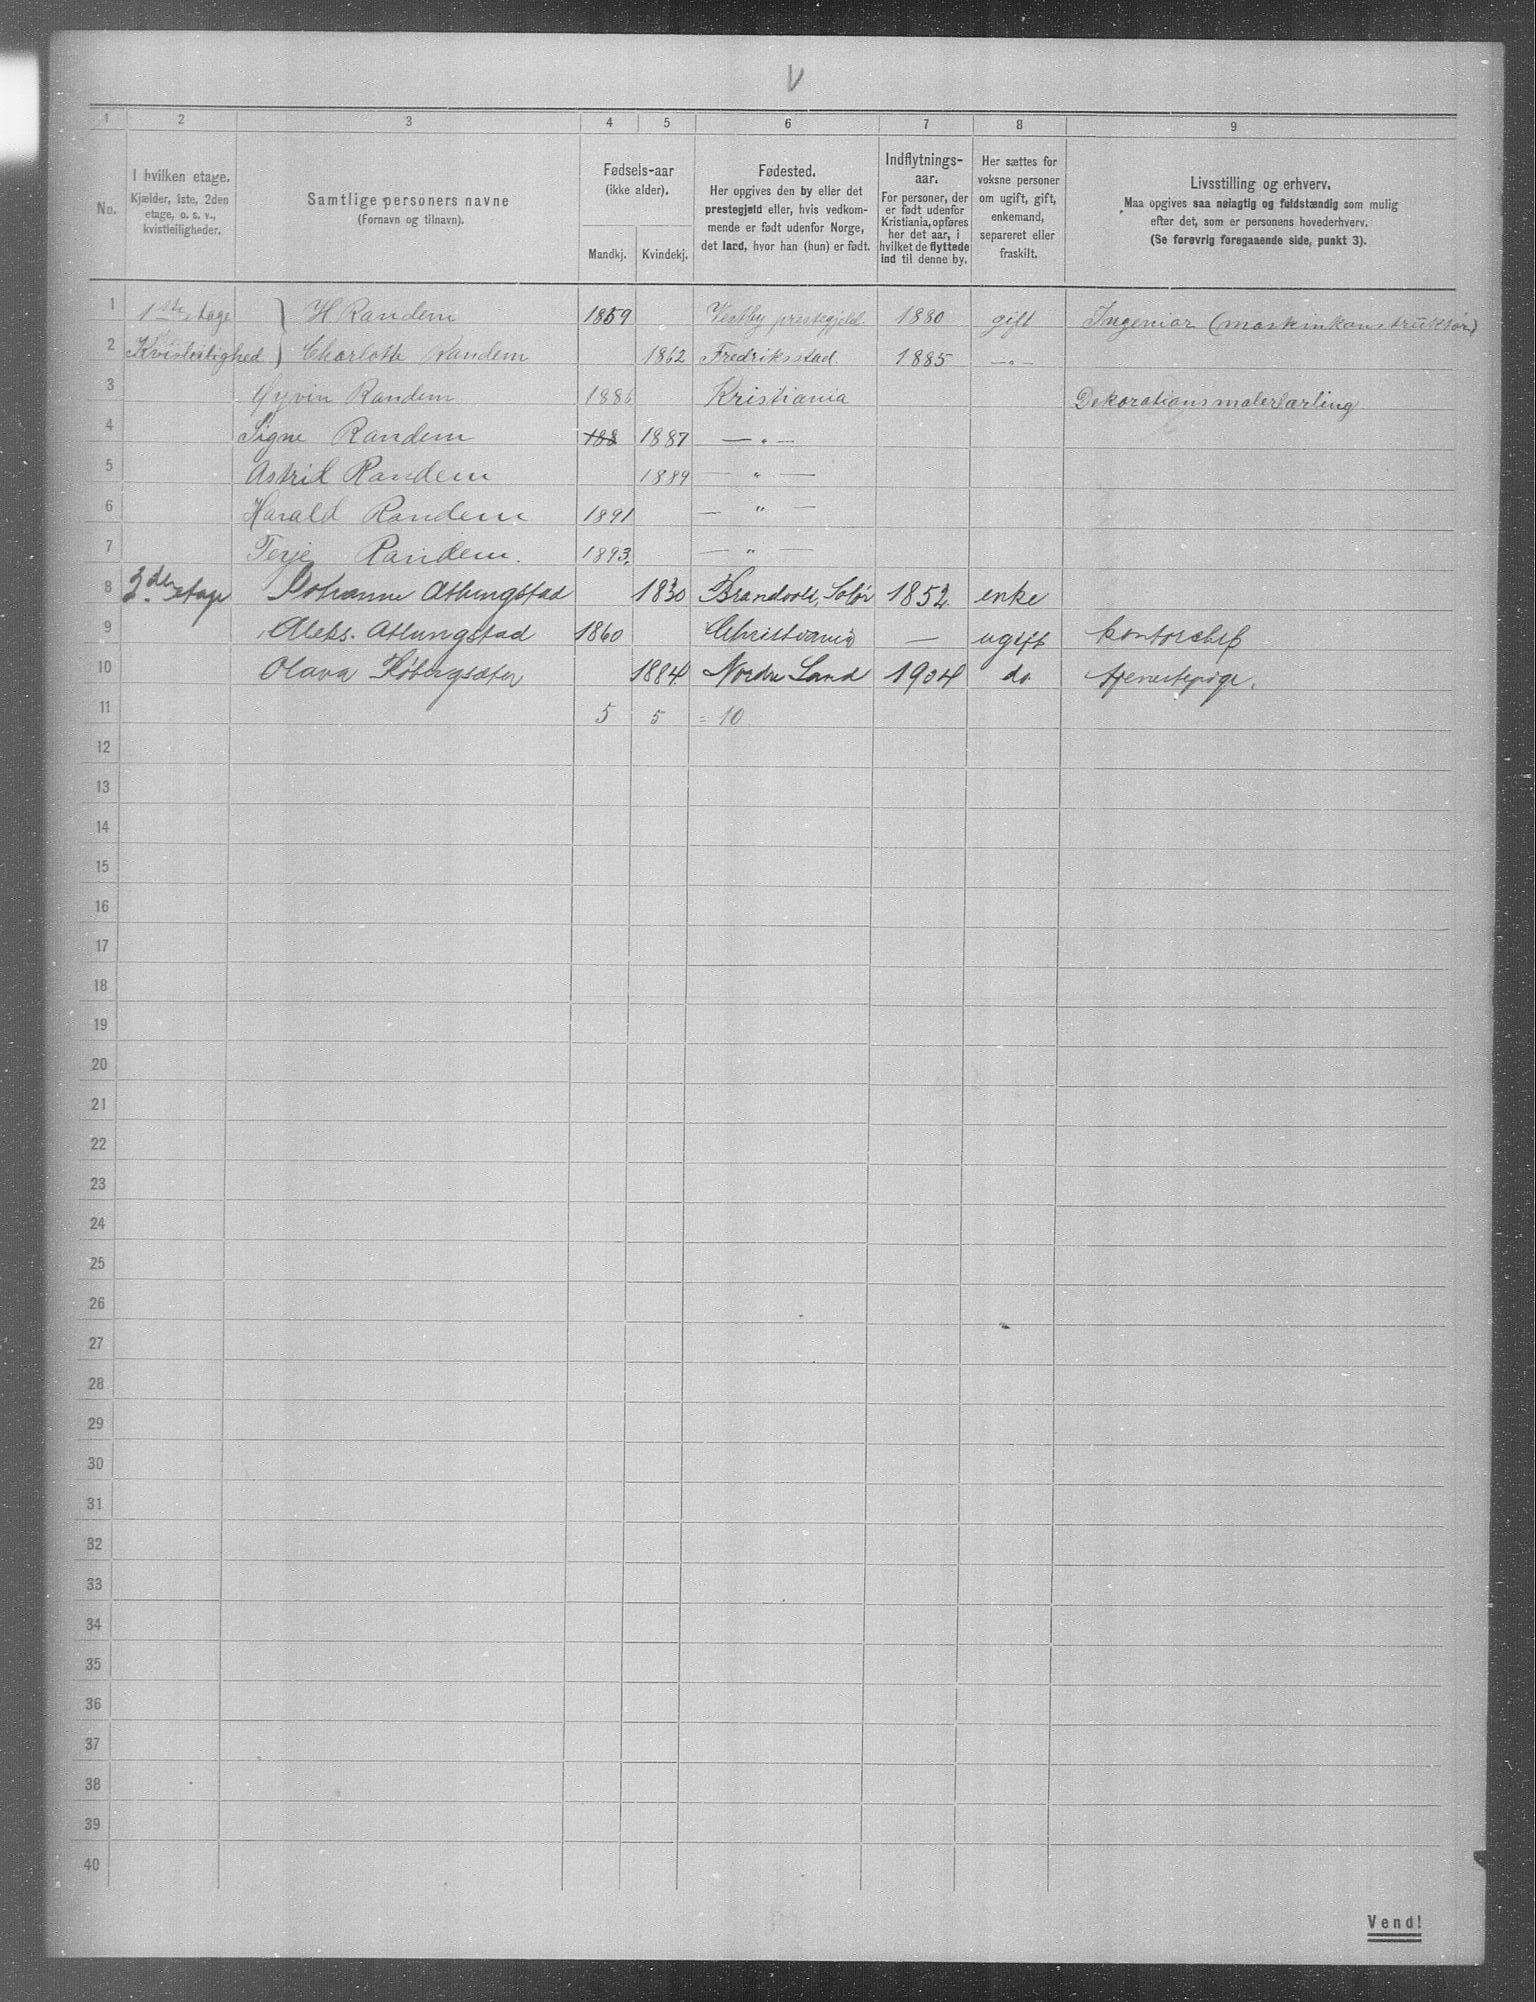 V
1 2 3 4 5 6 7 8 9
No.
I hvilken etage.
Kjælder, 1ste, 2den
etage, o. s. v.,
kvistleiligheder.
Samtlige personers navne
(Fornavn og tilnavn).
Fødsels-aar
(ikke alder).
Mandkj. Kvindekj.
Fødested.
Her opgives den by eller det
prestegjeld eller, hvis vedkom-
mende er født udenfor Norge,
det land, hvor han (hun) er født.
Indflytnings-
aar.
For personer, der
er født udenfor
Kristiania, opføres
her det aar, i
hvilket de flyttede
ind til denne by.
Her sættes for
voksne personer
om ugift, gift,
enkemand,
separeret eller
fraskilt.
Livsstilling og erhverv.
Maa opgives saa nøiagtig og fuldstændig som mulig
efter det, som er personens hovederhverv.
(Se forøvrig foregaaende side, punkt 3).
1 1ste etage } H Randem 1859 Vestby prestegjeld. 1880 gift Ingeniør (maskinkonstruktør)
2 Kvistleilighed } Charlotte Randem 1862 Fredriksstad. 1885 — „ —
3 Øyvin Randem 1886 Kristiania Dekorationsmalerlærling
4 Signe Randem 188 1887 — „ —
5 Astrid Randem 1889 — „ —
6 Harald Randem 1891 — „ —
7 Terje Randem. 1893. — „ —
8 2den etage Johanne Athungstad 1830 Brandvold, Solør 1852 enke
9 Aleks. Athungstad 1860 Christiania — ugift kontorchef
10 Olava 1884 Nordre Land 1904 do tjenestepige.
11 5 5 = 10
12
13
14
15
16
17
18
19
20
21
22
23
24
25
26
27
28
29
30
31
32
33
34
35
36
37
38
39
40
Vend!